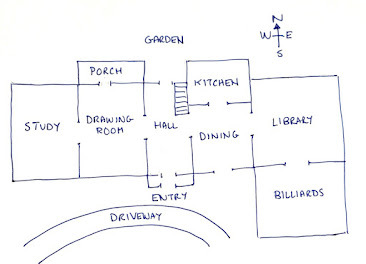 GARDEN
N
W E
S
PORCH
KITCHEN
STUDY
DRAWING
ROOM
HALL
DINING
LIBRARY
ENTRY
BILLIARDS
DRIVEWAY